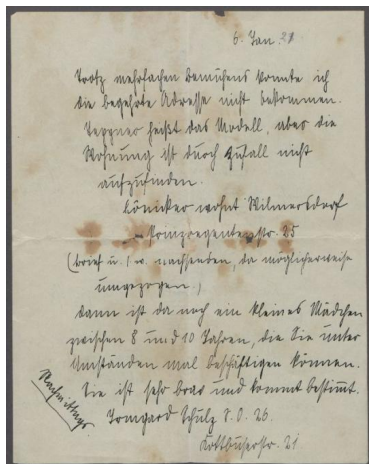 6. Jan. 21
Trotz mehrfachen Bemühens konnte ich
die begehrte Adresse nicht bekommen.
Teppner heißt das Modell, aber die
Wohnung ist durch Zufall nicht
aufzufinden.
Könicker wohnt Wilmersdorf
Prinzregentenstr. 25
(Brief u. / w. nachsenden, da möglicherweise
umgezogen.)
Dann ist da noch ein kleines Mädchen
zwischen 8 und 10 Jahren, die Sie unter
Umständen mal beschäftigen können.
Sie ist sehr brav und kommt bestimmt.
Nachmittags
Irmgard Schulz S.O. 26.
Kottbuserstr. 21